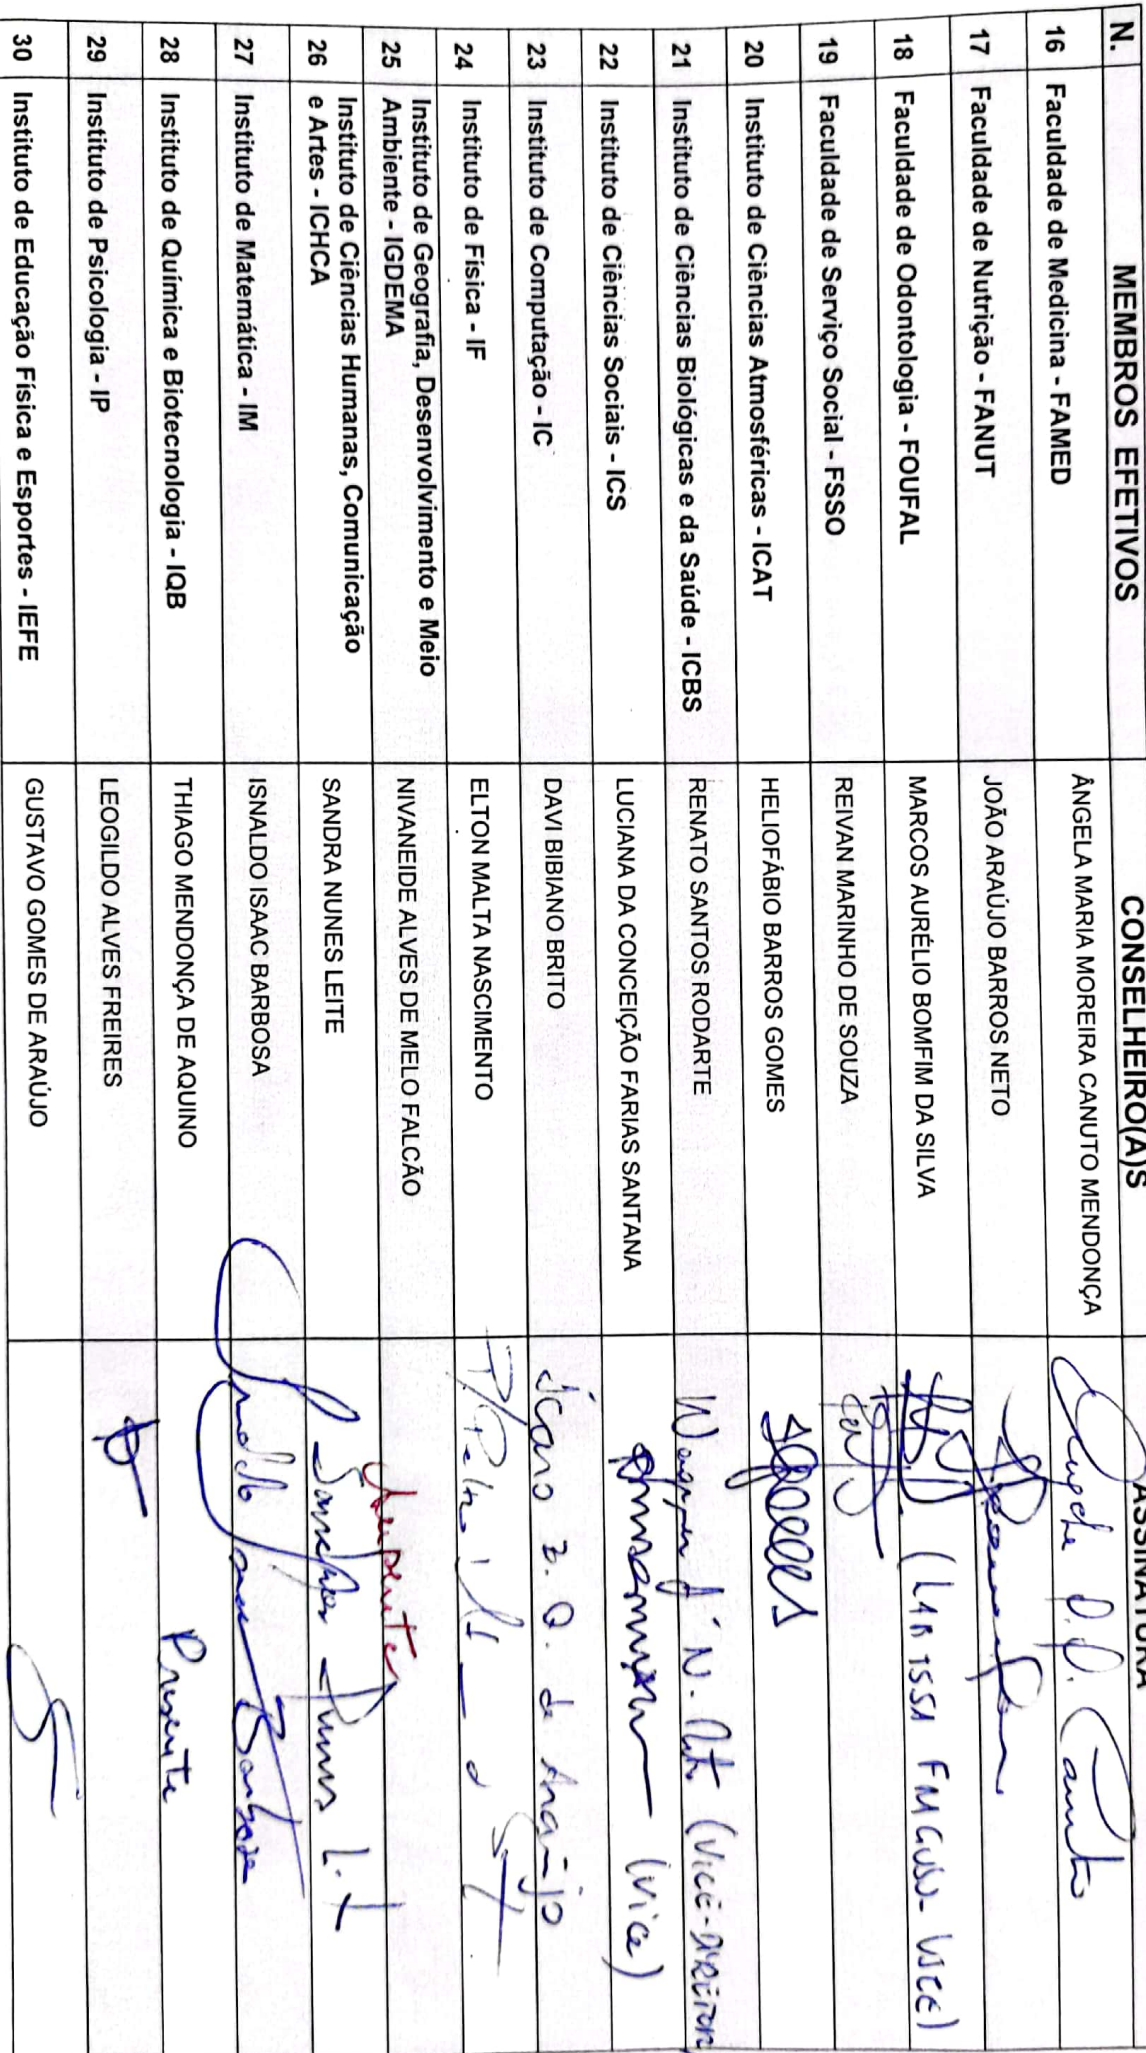 N. MEMBROS EFETIVOS CONSELHEIRO(A)S ASSINATURA
16 Faculdade de Medicina - FAMED ÂNGELA MARIA MOREIRA CANUTO MENDONÇA Canuto
17 Faculdade de Nutrição - FANUT JOÃO ARAÚJO BARROS NETO
18 Faculdade de Odontologia - FOUFAL MARCOS AURÉLIO BOMFIM DA SILVA (LARISSA
19 Faculdade de Serviço Social - FSSO REIVAN MARINHO DE SOUZA
20 Instituto de Ciências Atmosféricas - ICAT HELIOFÁBIO BARROS GOMES
21 Instituto de Ciências Biológicas e da Saúde - ICBS RENATO SANTOS RODARTE N. (VICE-DIRETOR
22 Instituto de Ciências Sociais - ICS LUCIANA DA CONCEIÇÃO FARIAS SANTANA (Vice)
23 Instituto de Computação - IC DAVI BIBIANO BRITO Ícaro B. Q. de Araújo
24 Instituto de Física - IF ELTON MALTA NASCIMENTO
25 Instituto de Geografia, Desenvolvimento e Meio
Ambiente - IGDEMA NIVANEIDE ALVES DE MELO FALCÃO
26 Instituto de Ciências Humanas, Comunicação
e Artes - ICHCA SANDRA NUNES LEITE
27 Instituto de Matemática - IM ISNALDO ISAAC BARBOSA Barbosa
28 Instituto de Química e Biotecnologia - IQB THIAGO MENDONÇA DE AQUINO Presente
29 Instituto de Psicologia - IP LEOGILDO ALVES FREIRES
30 Instituto de Educação Física e Esportes - IEFE GUSTAVO GOMES DE ARAÚJO